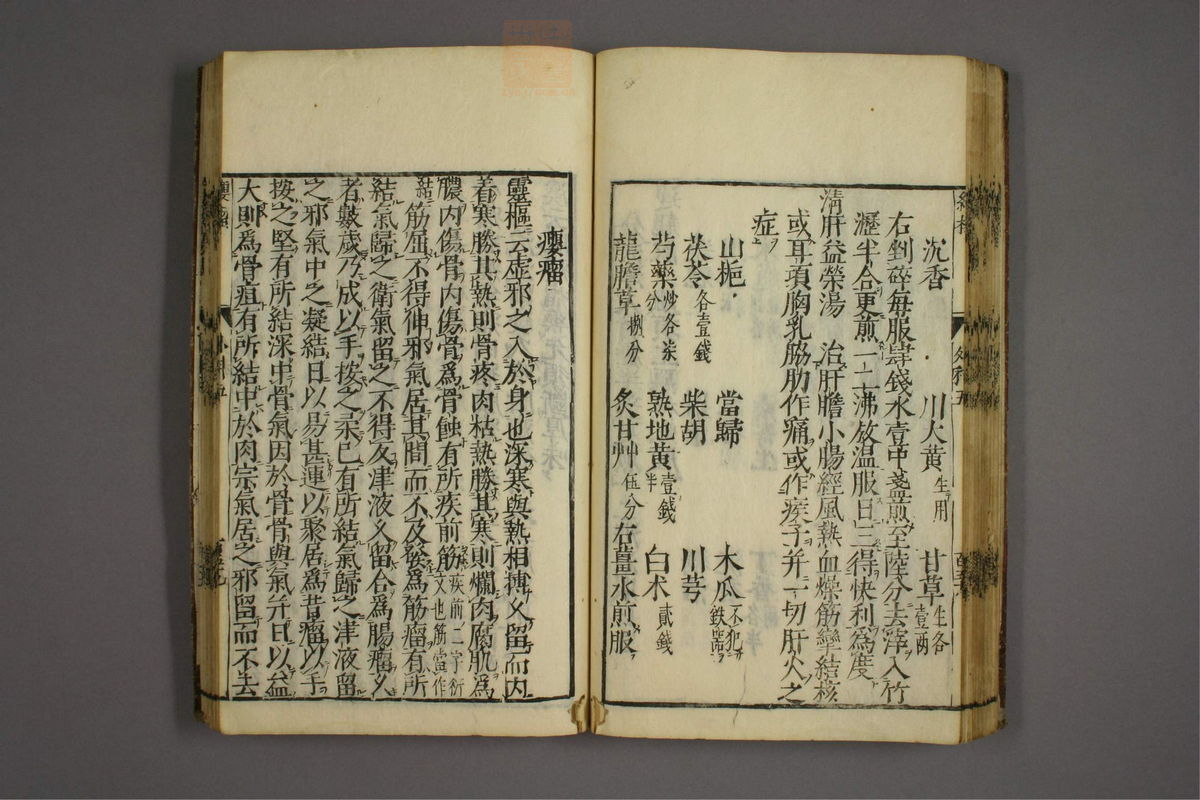 沉香　川大黄生用　甘草生各壹兩
右剉碎每服肆錢水壹中盞煎至陸分去滓入竹
瀝半合更煎一二沸放温服日三得快利為度
清肝益榮湯　治肝膽小腸經風熱血燥筋攣結核
或耳項胸乳脇肋作痛或作疾子并一切肝火之
症
山梔　當歸　木瓜不犯鉄器
茯苓各壹錢　柴胡　川芎
芍藥炒各柒分　熟地黄壹錢半　白术貳錢
龍膽草捌分　炙甘艸伍分右薑水煎服
癭瘤
靈樞云虚邪之入於身也深寒與熱相搏久留而内
着寒勝其熱則骨疼肉枯熱勝其寒則爛肉腐肌為
膿内傷骨内傷骨為骨蝕有所疾前筋疾前二字衍文也筋當作結
筋屈不得伸邪氣居其間而不及發為筋瘤有所
結氣歸之衛氣留之不得反津液久留合為腸瘤久
者數歲乃成以手按之柔已有所結氣歸之津液留
之邪氣中之凝結日以易甚連以聚居為昔瘤以手
按之堅有所結深中骨氣因於骨骨與氣并日以益
大則為骨疽有所結中於肉宗氣居之邪留而不去